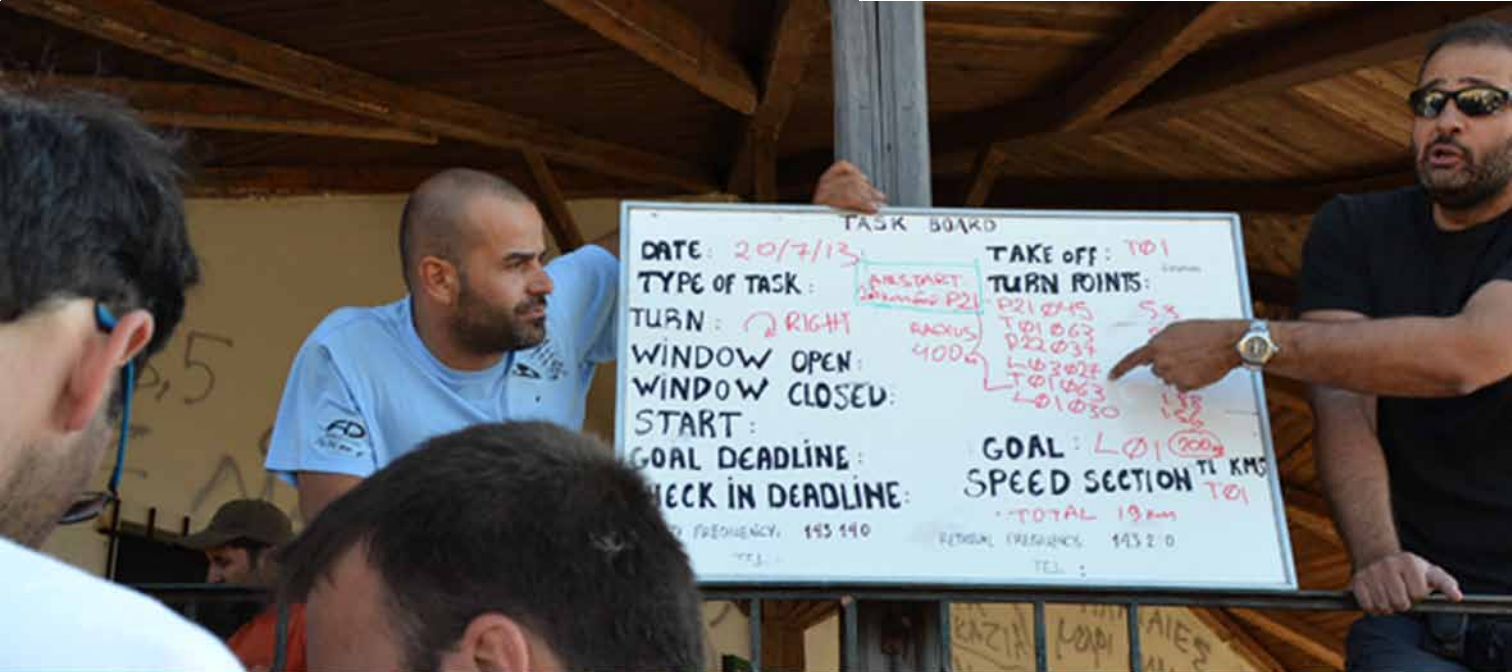 TASK BOARD
DATE: 20/7/13
TYPE OF TASK:
AIR START
P21
TURN: RIGHT
RADIUS
400m
WINDOW OPEN:
WINDOW CLOSED:
START:
GOAL DEADLINE:
HECK IN DEADLINE:
FREQUENCY: 143 140
TAKE OFF: TØ1
TURN POINTS:
P21 Ø45
TØ1 Ø63
P22 Ø37
LØ3 Ø27
TØ1 Ø63
LØ1 Ø30
GOAL: LØ1 200m
SPEED SECTION TL KMS
TØ1
TOTAL 19 km
FREQUENCY
TEL:
,5